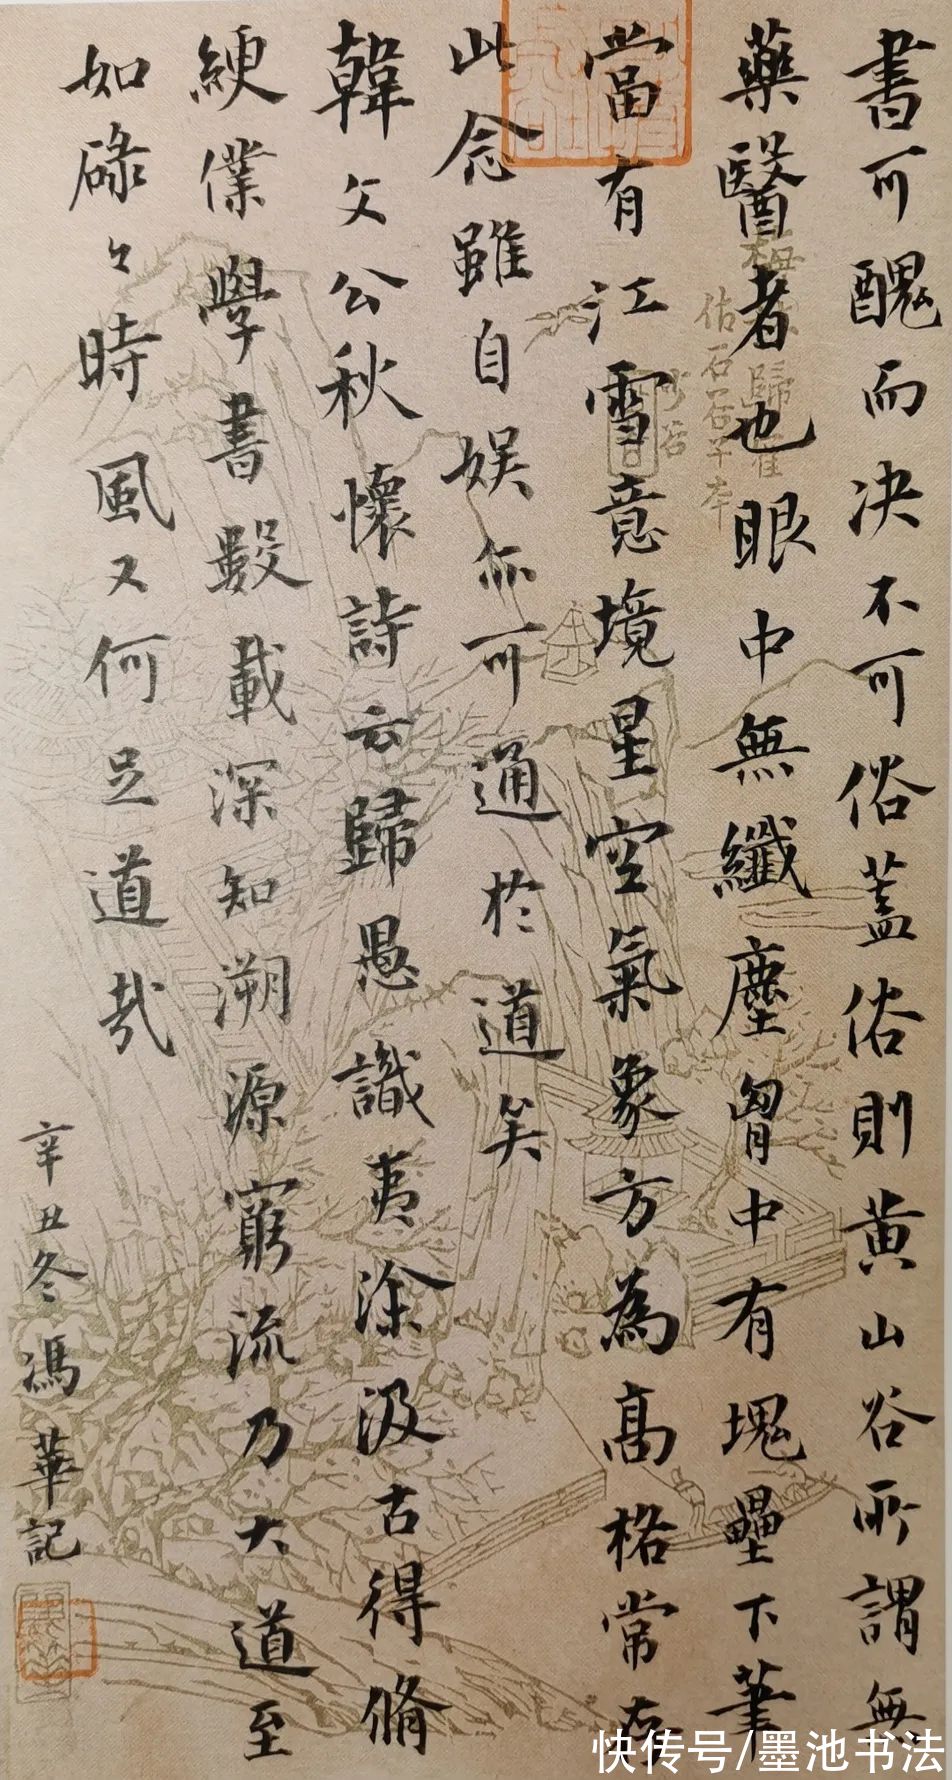 書可醜而決不可俗蓋俗則黄山谷所謂無
藥醫者也眼中無纖塵胷中有塊壘下筆
當有江雪意境星空氣象方為髙格常存
此念雖自娱亦可通於道矣
韓文公秋懷詩云歸愚識夷涂汲古得脩
綆僕學書數載深知溯源窮流乃大道至
如碌々時風又何足道哉
辛丑冬馮華記
快传号/墨池书法